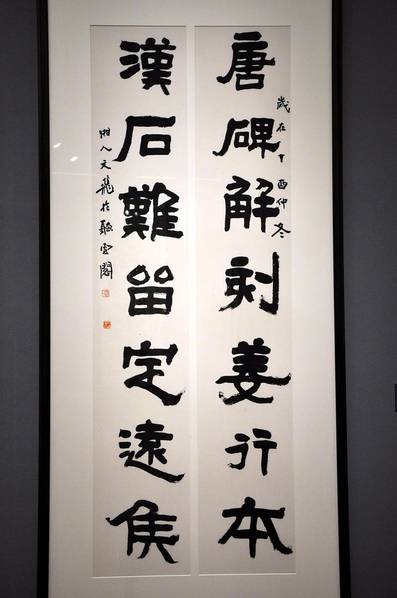 唐碑解刻姜行本
歲在丁酉仲冬
漢石難留定遠侯
湘人文龍於聽雲閣